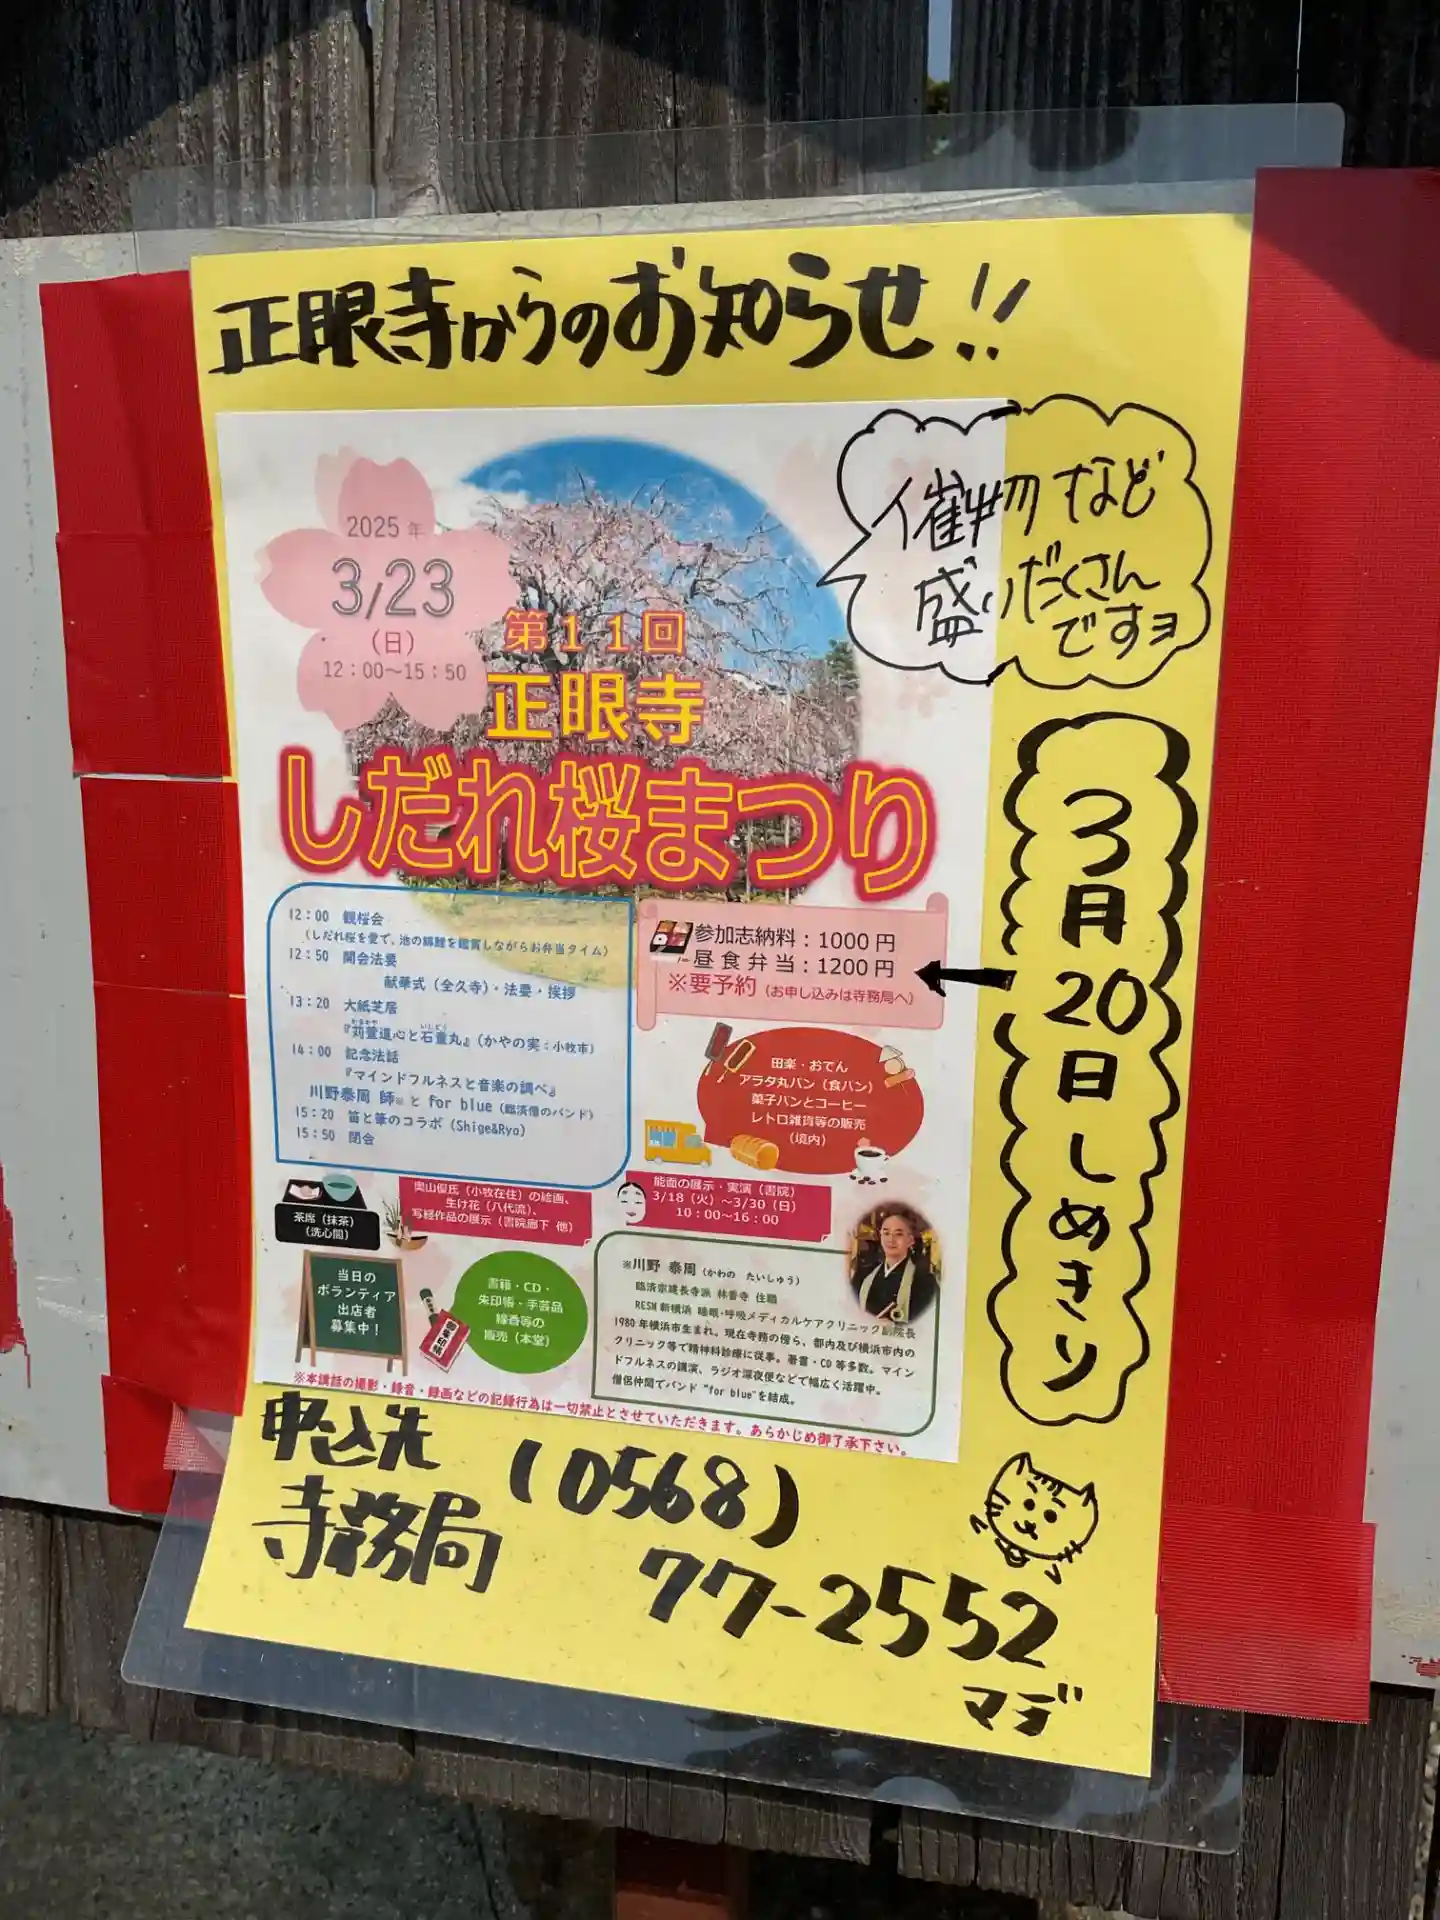 正眼寺からのお知らせ!!
催物など
盛りだくさん
ですヨ
2025年
3/23
(日)
12:00〜15:50
第11回
正眼寺
しだれ桜まつり
12:00 観桜会
(しだれ桜を愛で、池の錦鯉を鑑賞しながらお弁当タイム)
12:50 開会法要
献華式(全久寺)・法要・挨拶
13:20 大紙芝居
『苅萱道心と石童丸』(かやの実:小牧市)
14:00 記念法話
『マインドフルネスと音楽の調べ』
川野泰周 師※と for blue(臨済僧のバンド)
15:20 笛と筆のコラボ(Shige&Ryo)
15:50 閉会
参加志納料:1000円
昼食弁当:1200円
※要予約(お申し込みは寺務局へ)
3月20日しめきり
田楽・おでん
アラタ丸パン(食パン)
菓子パンとコーヒー
レトロ雑貨等の販売
(境内)
茶席(抹茶)
(洗心閣)
奥山優氏(小牧在住)の絵画、
生け花(八代流)、
写経作品の展示(書院廊下 他)
能面の展示・実演(書院)
3/18(火)〜3/30(日)
10:00〜16:00
当日の
ボランティア
出店者
募集中!
御朱印帳
書籍・CD・
朱印帳・手芸品
線香等の
販売(本堂)
※川野 泰周(かわの たいしゅう)
臨済宗建長寺派 林香寺 住職
RESM新横浜 睡眠・呼吸メディカルケアクリニック副院長
1980年横浜市生まれ。現在寺務の傍ら、都内及び横浜市内の
クリニック等で精神科診療に従事。著書・CD等多数。マイン
ドフルネスの講演、ラジオ深夜便などで幅広く活躍中。
僧侶仲間でバンド"for blue"を結成。
※本講話の撮影・録音・録画などの記録行為は一切禁止とさせていただきます。あらかじめ御了承下さい。
申込先
寺務局
(0568)
77-2552
マデ